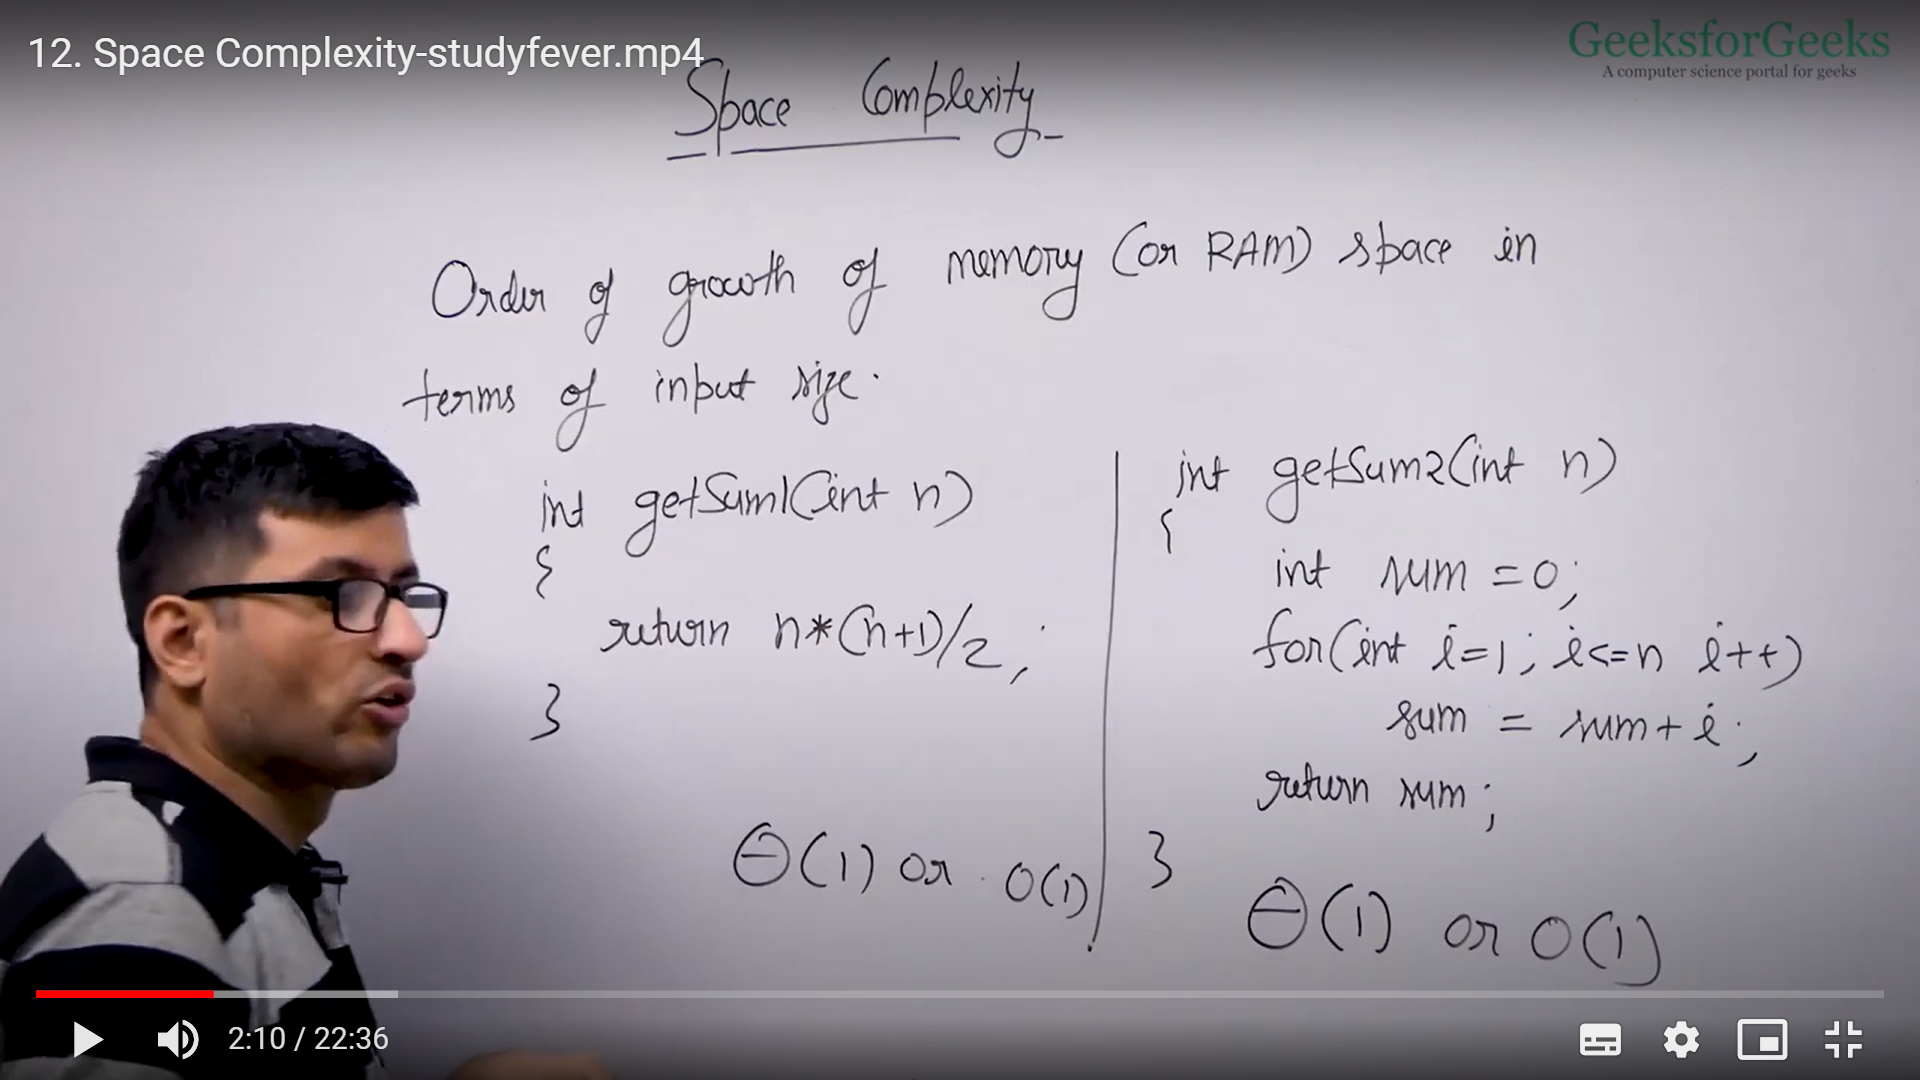 12. Space Complexity-studyfever.mp4
GeeksforGeeks
A computer science portal for geeks
Space Complexity
Order of growth of memory (or RAM) space in
terms of input size.
int getSum1(int n)
{
return n*(n+1)/2;
}
Θ(1) or O(1)
int getSum2(int n)
{
int sum = 0;
for(int i=1; i<=n i++)
sum = sum + i;
return sum;
}
Θ(1) or O(1)
2:10 / 22:36